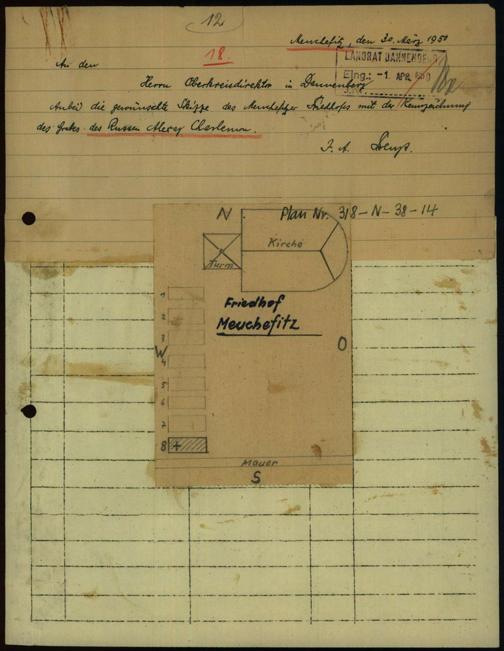 12
18.
Meuchefitz, den 30. März 1950
LANDRAT DANNENBERG
Eing.: -1. APR. 1950
An den
Herrn Oberkreisdirektor in Dannenberg
Anbei die gewünschte Skizze des Meuchefitzer Friedhofes mit der Kennzeichnung
des Grabes des Russen Alexej
I. A.
N
Plan Nr. 318-N-38-14
Kirche
Turm
Friedhof
Meuchefitz
1
2
3
W
O
4
5
6
7
8 +
Mauer
S